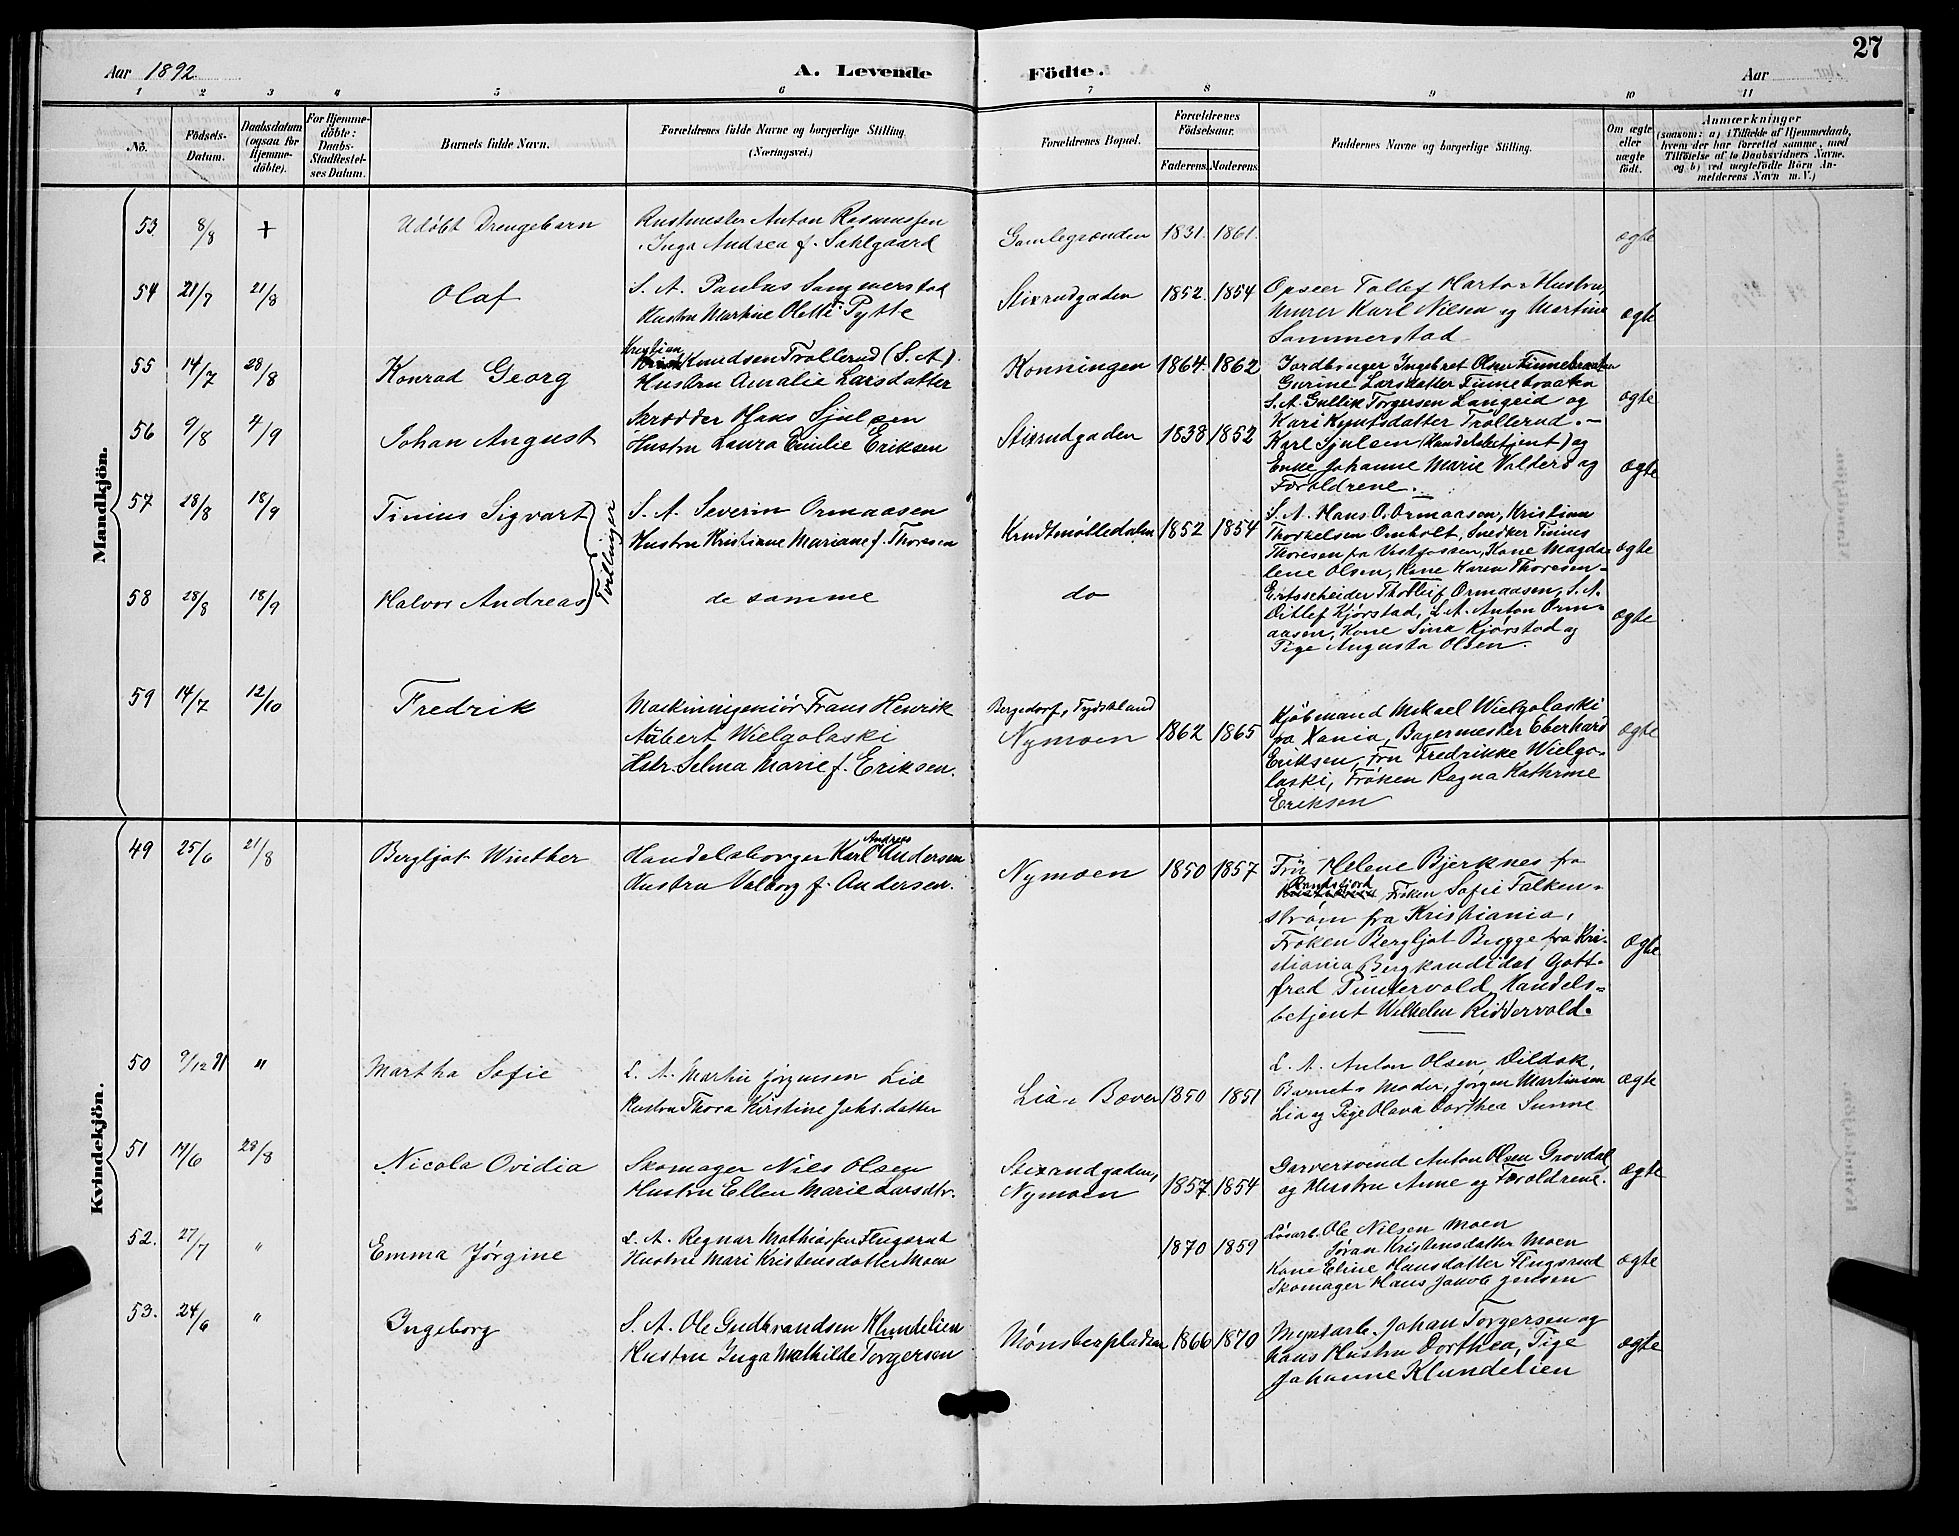 27
Aar 1892
A. Levende Födte.
Aar
1 2 3 4 5 6 7 8 9 10 11
No.
Födsels-Datum.
Daabsdatum (ogsaa for Hjemme-döbte).
For Hjemme-döbte: Daabs-Stadfæstel-ses Datum.
Barnets fulde Navn.
Forældrenes fulde Navne og borgerlige Stilling. (Næringsvei.)
Forældrenes Bopæl.
Forældrenes Födselsaar.
Faderens. Moderens.
Faddernes Navne og borgerlige Stilling.
Om ægte eller uægte födt.
Anmærkninger
(saasom: a) i Tilfælde af Hjemmedaab,
hvem der har forrettet samme, med
Tilföielse af to Daabsvidners Navne.
og b) ved uægtefödte Börn An-
melderens Navn m. V.)
Mandkjön.
53 8/8 + Udöbt Drengebarn
Rustmester Anton Rasmussen
Inga Andrea f. Sahlgaard
Gamlegrænden 1831. 1861. ægte
54 21/7 21/8 Olaf
S. A. Paulus Sammerstad
Hustru Martine Olette Pytte
Stixrudgaden 1852. 1854
Opseer Tollef Hartor Hustru,
Murer Karl Nilsen og Martine
Sammerstad ægte
55 14/7 28/8 Konrad Georg
Kristian Knudsen Trollerud (S. A.).
Hustru Amalie Larsdatter
Konningen 1864. 1862
Jordbruger Ingebret Olsen Finnebraaten
Gurine Larsdatter Finnebraaten
S. A. Gullik Torgersen Langeid og
Kari Knutsdatter Trollerud. ægte
56 9/8 4/9 Johan August
Skrædder Hans Sjulsen
Hustru Laura Emilie Eriksen
Stixrudgaden 1838 1852
Karl Sjulsen (Handelsbetjent) og
Enke Johanne Marie Valders og
Forældrene. ægte
57 28/8 18/9 Tinius Sigvart
Tvillinger
S. A. Severin Ormaasen
Hustru Kristiane Mariane f. Thoresen
Krudtmølledalen 1852 1854
S. A. Hans O. Ormaasen, Kristian
Thorkelsen Omholt, Snedker Tinius
Thoresen fra Vestfossen, Kone Magda-
lene Olsen, Kone Karen Thoresen- ægte
58 28/8 18/9 Halvor Andreas
de samme
do
Ertsscheider Thorleif Ormaasen, S. A.
Ditlef Kjørstad, S. A. Anton Orm-
aasen, Kone Sina Kjørstad og
Pige Augusta Olsen. ægte
59 14/7 12/10 Fredrik
Maskiningeniør Frans Henrik
Aabert Wielgolaski
Hstr. Selma Marie f. Eriksen.
Bergedorf, Tydskland
Nymoen 1862 1865
Kjøbmand Mikael Wielgolaski
fra Xania, Bagermester Eberhard
Eriksen, Fru Fredrikke Wielgo-
laski, Frøken Ragna Kathrine
Eriksen ægte
Kvindekjön.
49 25/6 21/8 Bergljot Winther
Handelsborger Karl Andreas Andersen
Hustru Valborg f. Andersen.
Nymoen 1850 1857
Fru Helene Bjerknes fra
Randsfjord, Frøken Sofie Falken-
strøm fra Kristiania,
Frøken Bergljot Bugge fra Kri-
stiania Bergkandidat Gott-
fred Puntervold, Handels-
betjent Wilhelm Riddervold. ægte
50 9/12 91 " Martha Sofie
L. A. Martin Jørgensen Lia
Hustru Thora Kirstine Johs.datter
Lia i Bæver 1850 1851
L. A. Anton Olsen Dildok,
Barnets Moder, Jørgen Martinsen
Lia og Pige Olava Dorthea Sunne ægte
51 19/6 28/8 Nicola Ovidia
Skomager Nils Olsen
Hustru Ellen Marie Larsdtr.
Stixrudgaden,
Nymoen 1857. 1854
Garversvend Anton Olsen Grovdal
og Hustru Anne og Forældrene. ægte
52. 27/7 " Emma Jørgine
L. A. Regnar Mathiassen Flugsrud
Hustru Mari Kristensdatter Moen
1870 1859
Løsarb. Ole Nilsen Moen
Jøran Kristensdatter Moen
Kone Eline Hansdatter Flugsrud
Skomager Hans Jakob Jensen ægte
53. 24/6 " Ingeborg
S. A. Ole Gudbrandsen Klundelien
Hustru Inga Mathilde Torgersen
Mønsterpladsen 1866 1870
Myntarb. Johan Torgersen og
hans Hustru Dorthea, Pige
Johanne Klundelien ægte